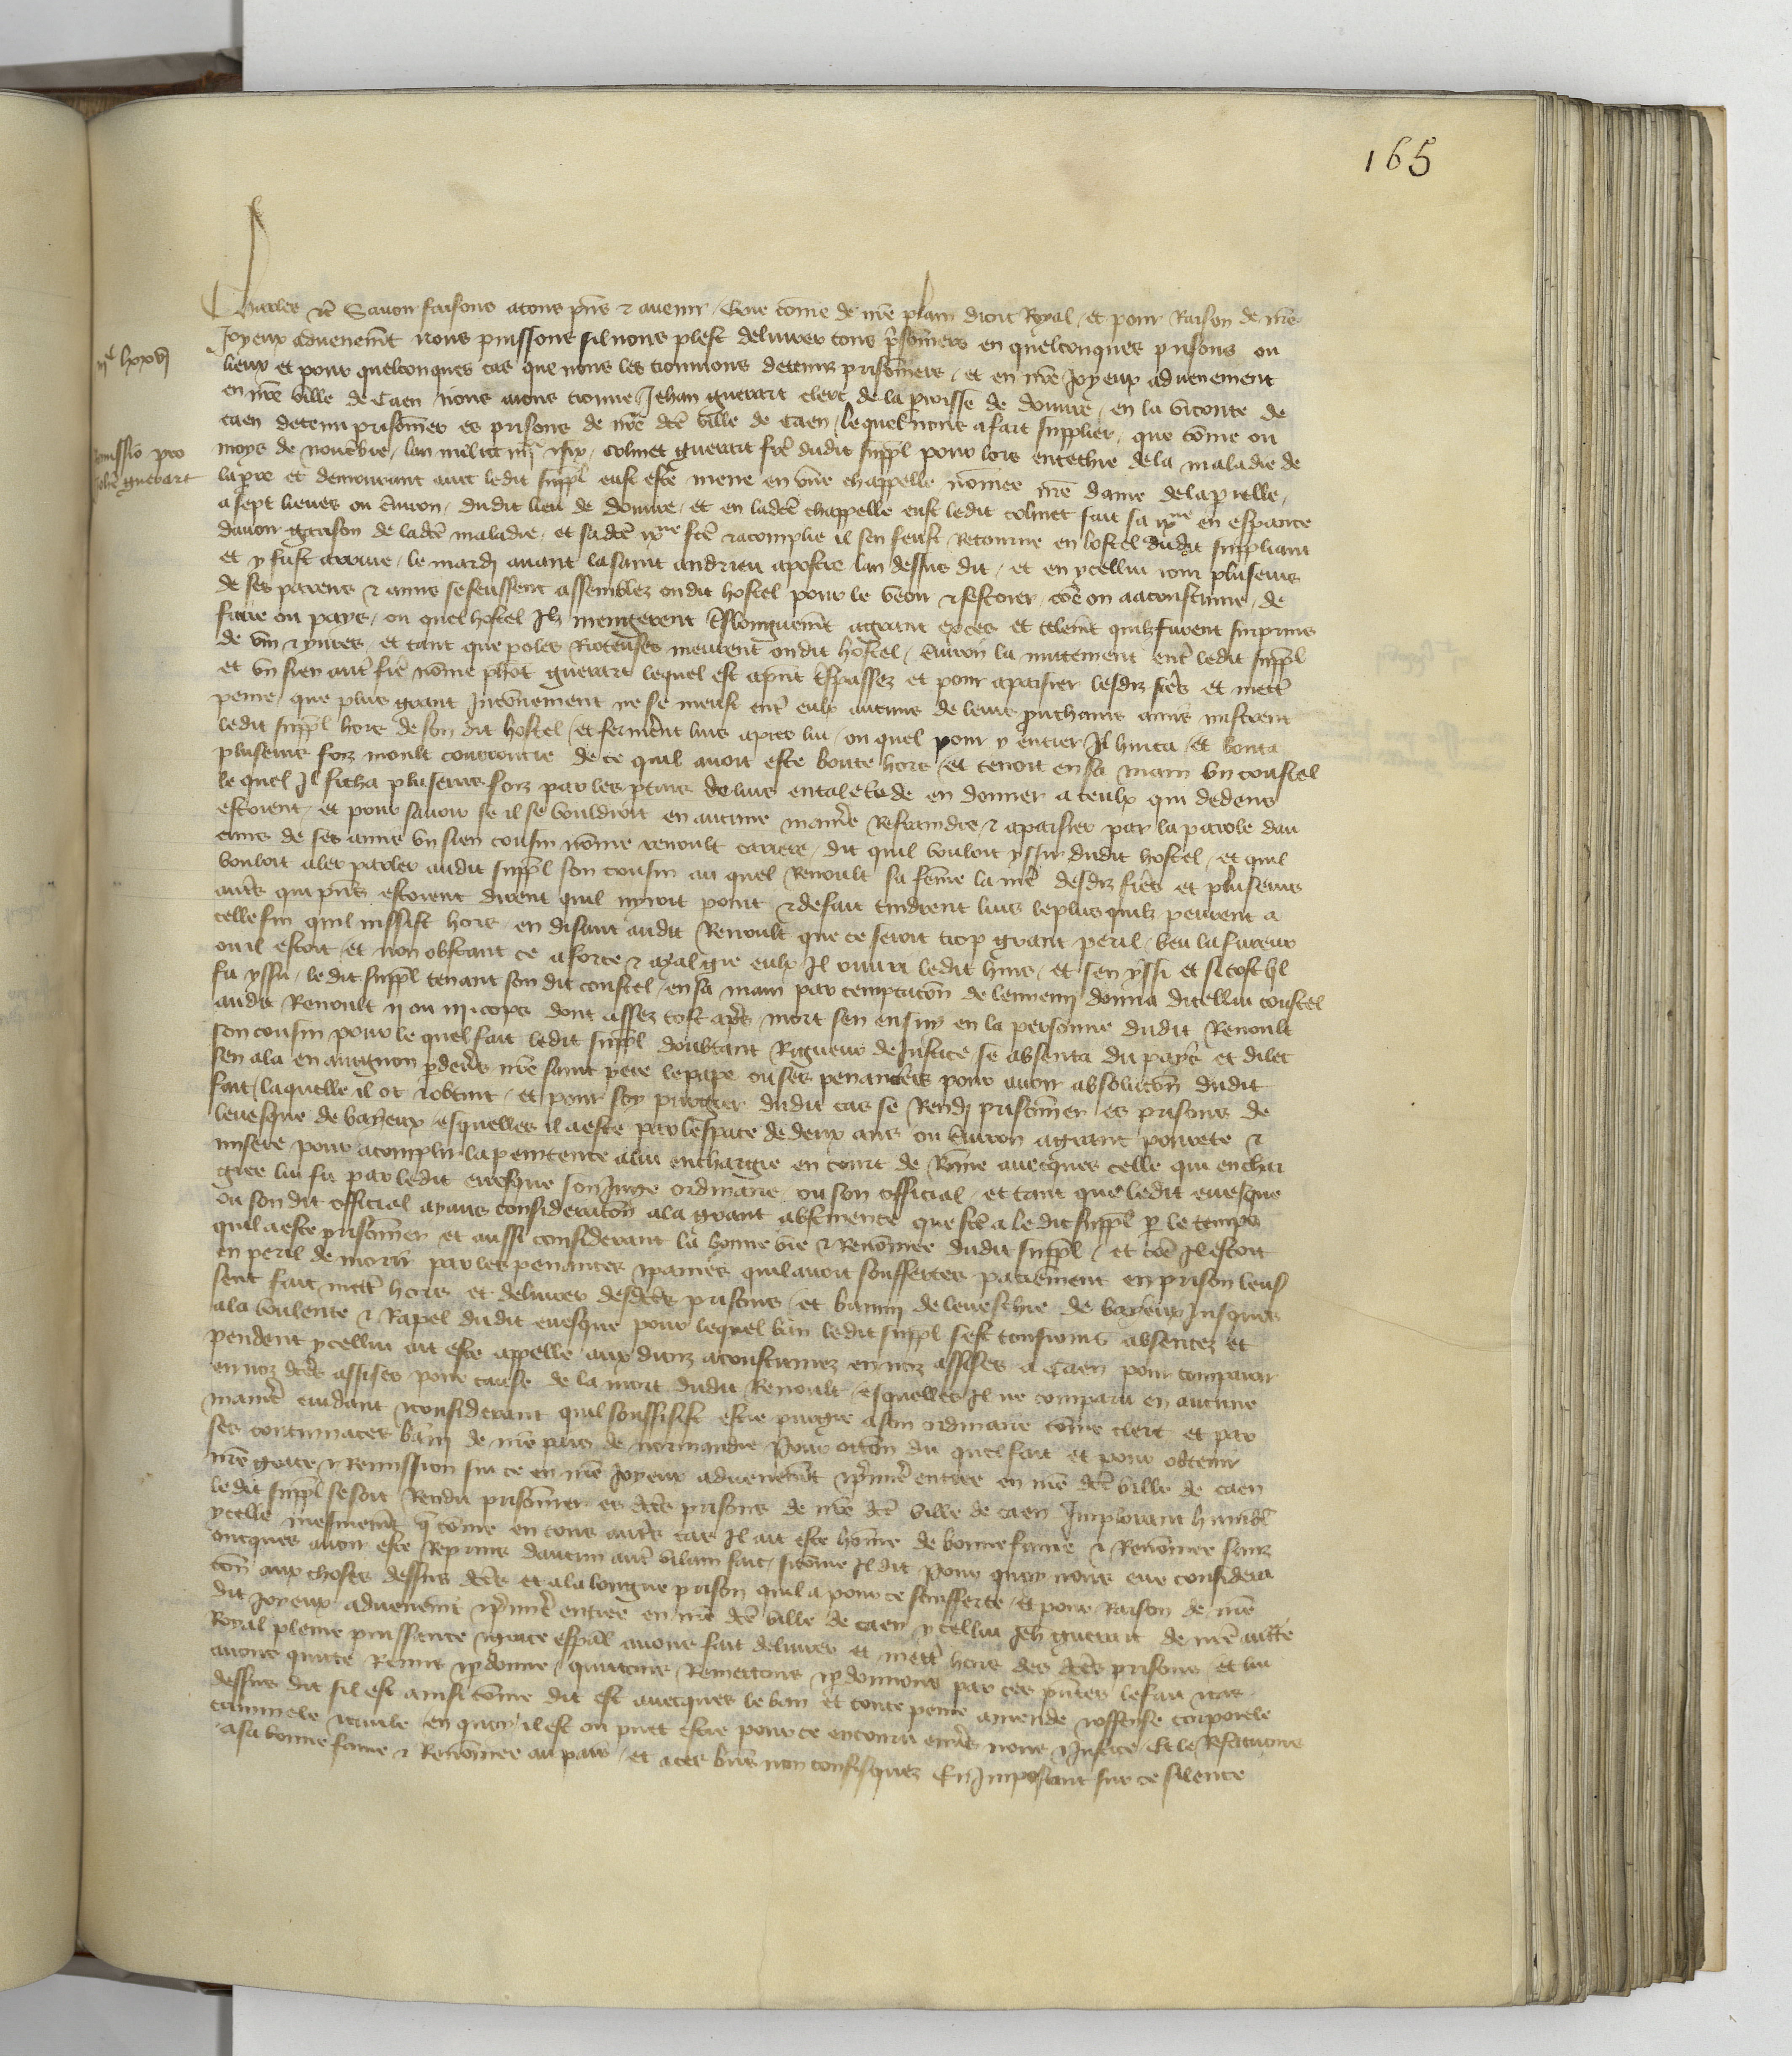 165
Charles etc Savoir faisons a tous pns et avenir Que come de nre plain droit Royal et pour Raison de nre
Joyeux advenemt nous puissons sil nous plest delivrer tous prsonniers en quelconques prisons ou
lieux et pour quelconques cas que nous les trouvions detenuz prisonniers et en nre Joyeux advenement
en nre ville de Caen nous avons trouve Jehan guerart clerc de la proisse de douvre en la viconte de
caen detenu prisonnier es prisons de nre dce ville de Caen lequel nous a fait supplier que come ou
moys de novebre lan mil ccc colinet guerart fre dudit suppl pour lors entechie de la maladie de
lapre et demourant avec ledit suppl eust este mene en une chappelle nomee nre dame de la
a sept lieues ou environ dudit lieu de douvre et en ladce chappelle eust ledit colinet fait sa ixne en espance
davoir garison de ladce maladie et sadce ixne fce et acomplie il sen feust Retourne en lostel dudit suppliant
et y fust arrive le mardi avant la saint andrieu apostre lan dessus dit et en ycellui jour pluseurs
de ses parens et amis se feussent assemblez oudit hostel pour le veoir et festoier coe on a acoustume de
faire ou pays ou quel hostel Ilz mengerent longuemt a grant exces et telemt quilz furent surprins
de vin et yvres et tant que poles Rioteuses meurent oudit hostel environ la nuitement entr ledit suppl
et un sien autr fre nome phot guerart lequel est apnt trspassez et pour apaisier lesdiz fres et mettr
peine que plus grant Inconvenient ne se meust entr eulx aucuns de leurs prochains amis mistrent
ledit suppl hors de son dit hostel et fermernt luis apres lui ou quel pour y entrer Il hurta et bouta
pluseurs foiz moult courroucie de ce quil avoit este boute hors et tenoit en sa main un coustel
lequel Il ficha pluseurs foiz par les ptuis de luis en talent de en donner a ceulx qui dedens
estoient et pour savoir se il se vouldroit en aucune manire Refraindre et apaisier par la parole dau
cuns de ses amis un sien cousin nome renoult carrere dit quil vouloit yssir dudit hostel et quil
vouloit aler parler audit suppl son cousin au quel Renoult sa feme la mre desdiz fres et pluseurs
autrs qui pns estoient dirent quil nyroit point et de fait tindrent luis le plus quilz peurent a
celle fin quil nissist hors en disant audit Renoult que ce seroit trop grant peril veu la fureur
ou il estoit et non obstant ce a force et malgre eulx Il ouvri ledit huis et sen yssi et si tost quil
fu yssu ledit suppl tenant son dit coustel en sa main par temptacon de lennemi donna dicellui coustel
audit Renoult ij ou iij cops dont assez tost aprs mort sen ensuy en la personne dudit Renoult
son cousin pour lequel fait ledit suppl doubtant Rigueur de Justice se absenta du pays et dilec
sen ala en avignon pdevrs nre saint pere le pape ou ses penanciers pour avoir absolucon dudit
fait laquelle il ot et obtint et pour soy purgier dudit cas se Rendi prisonnier es prisons de
levesque de bayeux esquelles il a este par lespace de deux ans ou environ a grant povrete et
misere pour acomplir la penitence a lui enchargie en court de Rome avecques celle qui enchar
giee lui fu par ledit evesque son Juge ordinaire ou son official et tant que ledit evesque
ou son dit official ayans consideracon a la grant abstinence que fce a ledit suppl pr le temps
quil a este prisonnier et aussi considerant la bonne vie et Renomee dudit suppl et coe Il estoit
en peril de morir par les penances quil avoit souffertes paciemment en prison leus
sent fait mettr hors et delivrer desdces prisons et banny de leveschie de bayeux Jusques
a la voulente et Rapel dudit evesque pour lequel ban ledit suppl sest tousiours absentez et
pendent ycellui ait este appelle aux droiz acoustumez en noz assises a Caen pour comparoir
en noz dces assises pour cause de la mort dudit Renoult esquelles Il ne comparu en aucune
manire cuidant et considerant quil souffisist estre purgie a son ordinaire come clerc et par
ses contumaces bany de nre pais de normandie Pour occon du quel fait et pour obtenir
nre grace et Remission sur ce en nre Joyeux advenemt et prmire entree en nre dce ville de caen
ledit suppl se soit Rendu prisonnier es dces prisons de nre dce ville de caen Implorant humbl
ycelle mesmemt q come en tous autrs cas Il ait este home de bonne fame et Renomee sanz
oncques avoir este Reprins daucun autr vilain fait si come Il dit Pour quoy nous eue considera
con aux choses dessus dces et a la longue prison quil a pour ce soufferte et pour Raison de nre
dit Joyeux advenemt et prmire entree en nre dce ville de caen ycellui Jeh guerart de nre autte
Royal pleine puissance et grace espal avons fait delivrer et mettr hors des dces prisons et lui
avons quitte Remis et pdonne quittons Remettons et pdonnons par ces pntes le fait et cas
dessus dit sil est ainsi come dit est avecques le ban et toute peine amende et offense corporele
criminele et civile en quoy il est ou puet estre pour ce encouru envrs nous et Justice Et le Restituons
a sa bonne fame et Renomee au pais et a ces biens non confisquez En Imposant sur ce silence
Remissio pro
Johe guerart